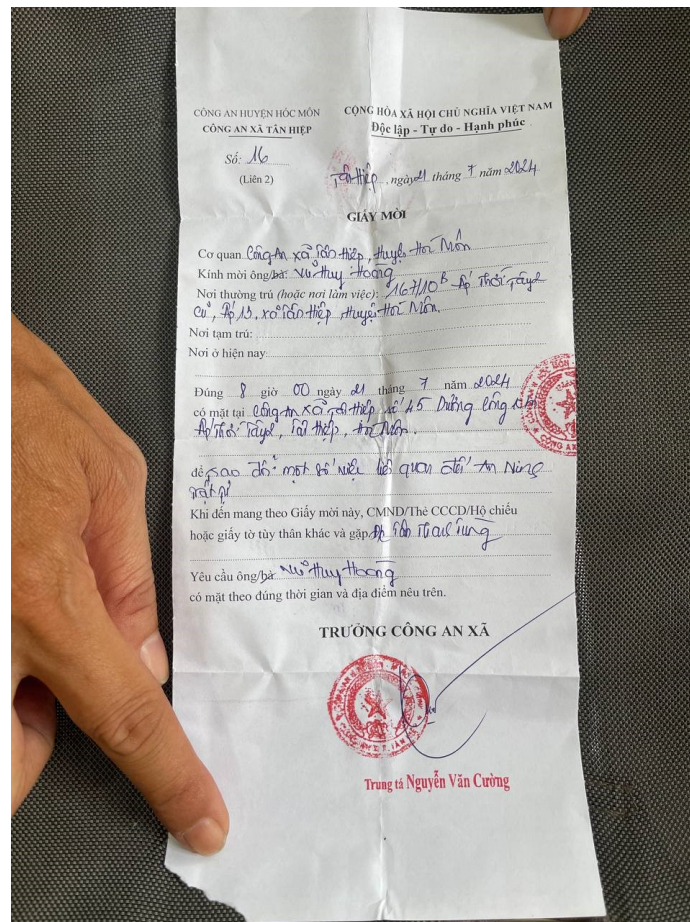 CÔNG AN HUYỆN HÓC MÔN
CÔNG AN XÃ TÂN HIỆP
CỘNG HÒA XÃ HỘI CHỦ NGHĨA VIỆT NAM
Độc lập - Tự do - Hạnh phúc
Số: 16
(Liên 2)
Tân Hiệp, ngày 21 tháng 7 năm 2024
GIẤY MỜI
Cơ quan Công An xã Tân Hiệp, Huyện Hóc Môn
Kính mời ông/bà: Vũ Huy Hoàng
Nơi thường trú (hoặc nơi làm việc): 167/10B Ấp Thới Tây
Ấp 13, xã Tân Hiệp Huyện Hóc Môn.
Nơi tạm trú:
Nơi ở hiện nay:
Đúng 8 giờ 00 ngày 21 tháng 7 năm 2024
có mặt tại Công An xã Tân Hiệp số 45 Dương Công Khi
Ấp Thới Tây, Tân Hiệp, Hóc Môn.
để trao đổi một số việc liên quan đến An Ninh
trật tự
Khi đến mang theo Giấy mời này, CMND/Thẻ CCCD/Hộ chiếu
hoặc giấy tờ tùy thân khác và gặp Đ/c Trần
Yêu cầu ông/bà: Vũ Huy Hoàng
có mặt theo đúng thời gian và địa điểm nêu trên.
TRƯỞNG CÔNG AN XÃ
Trung tá Nguyễn Văn Cường